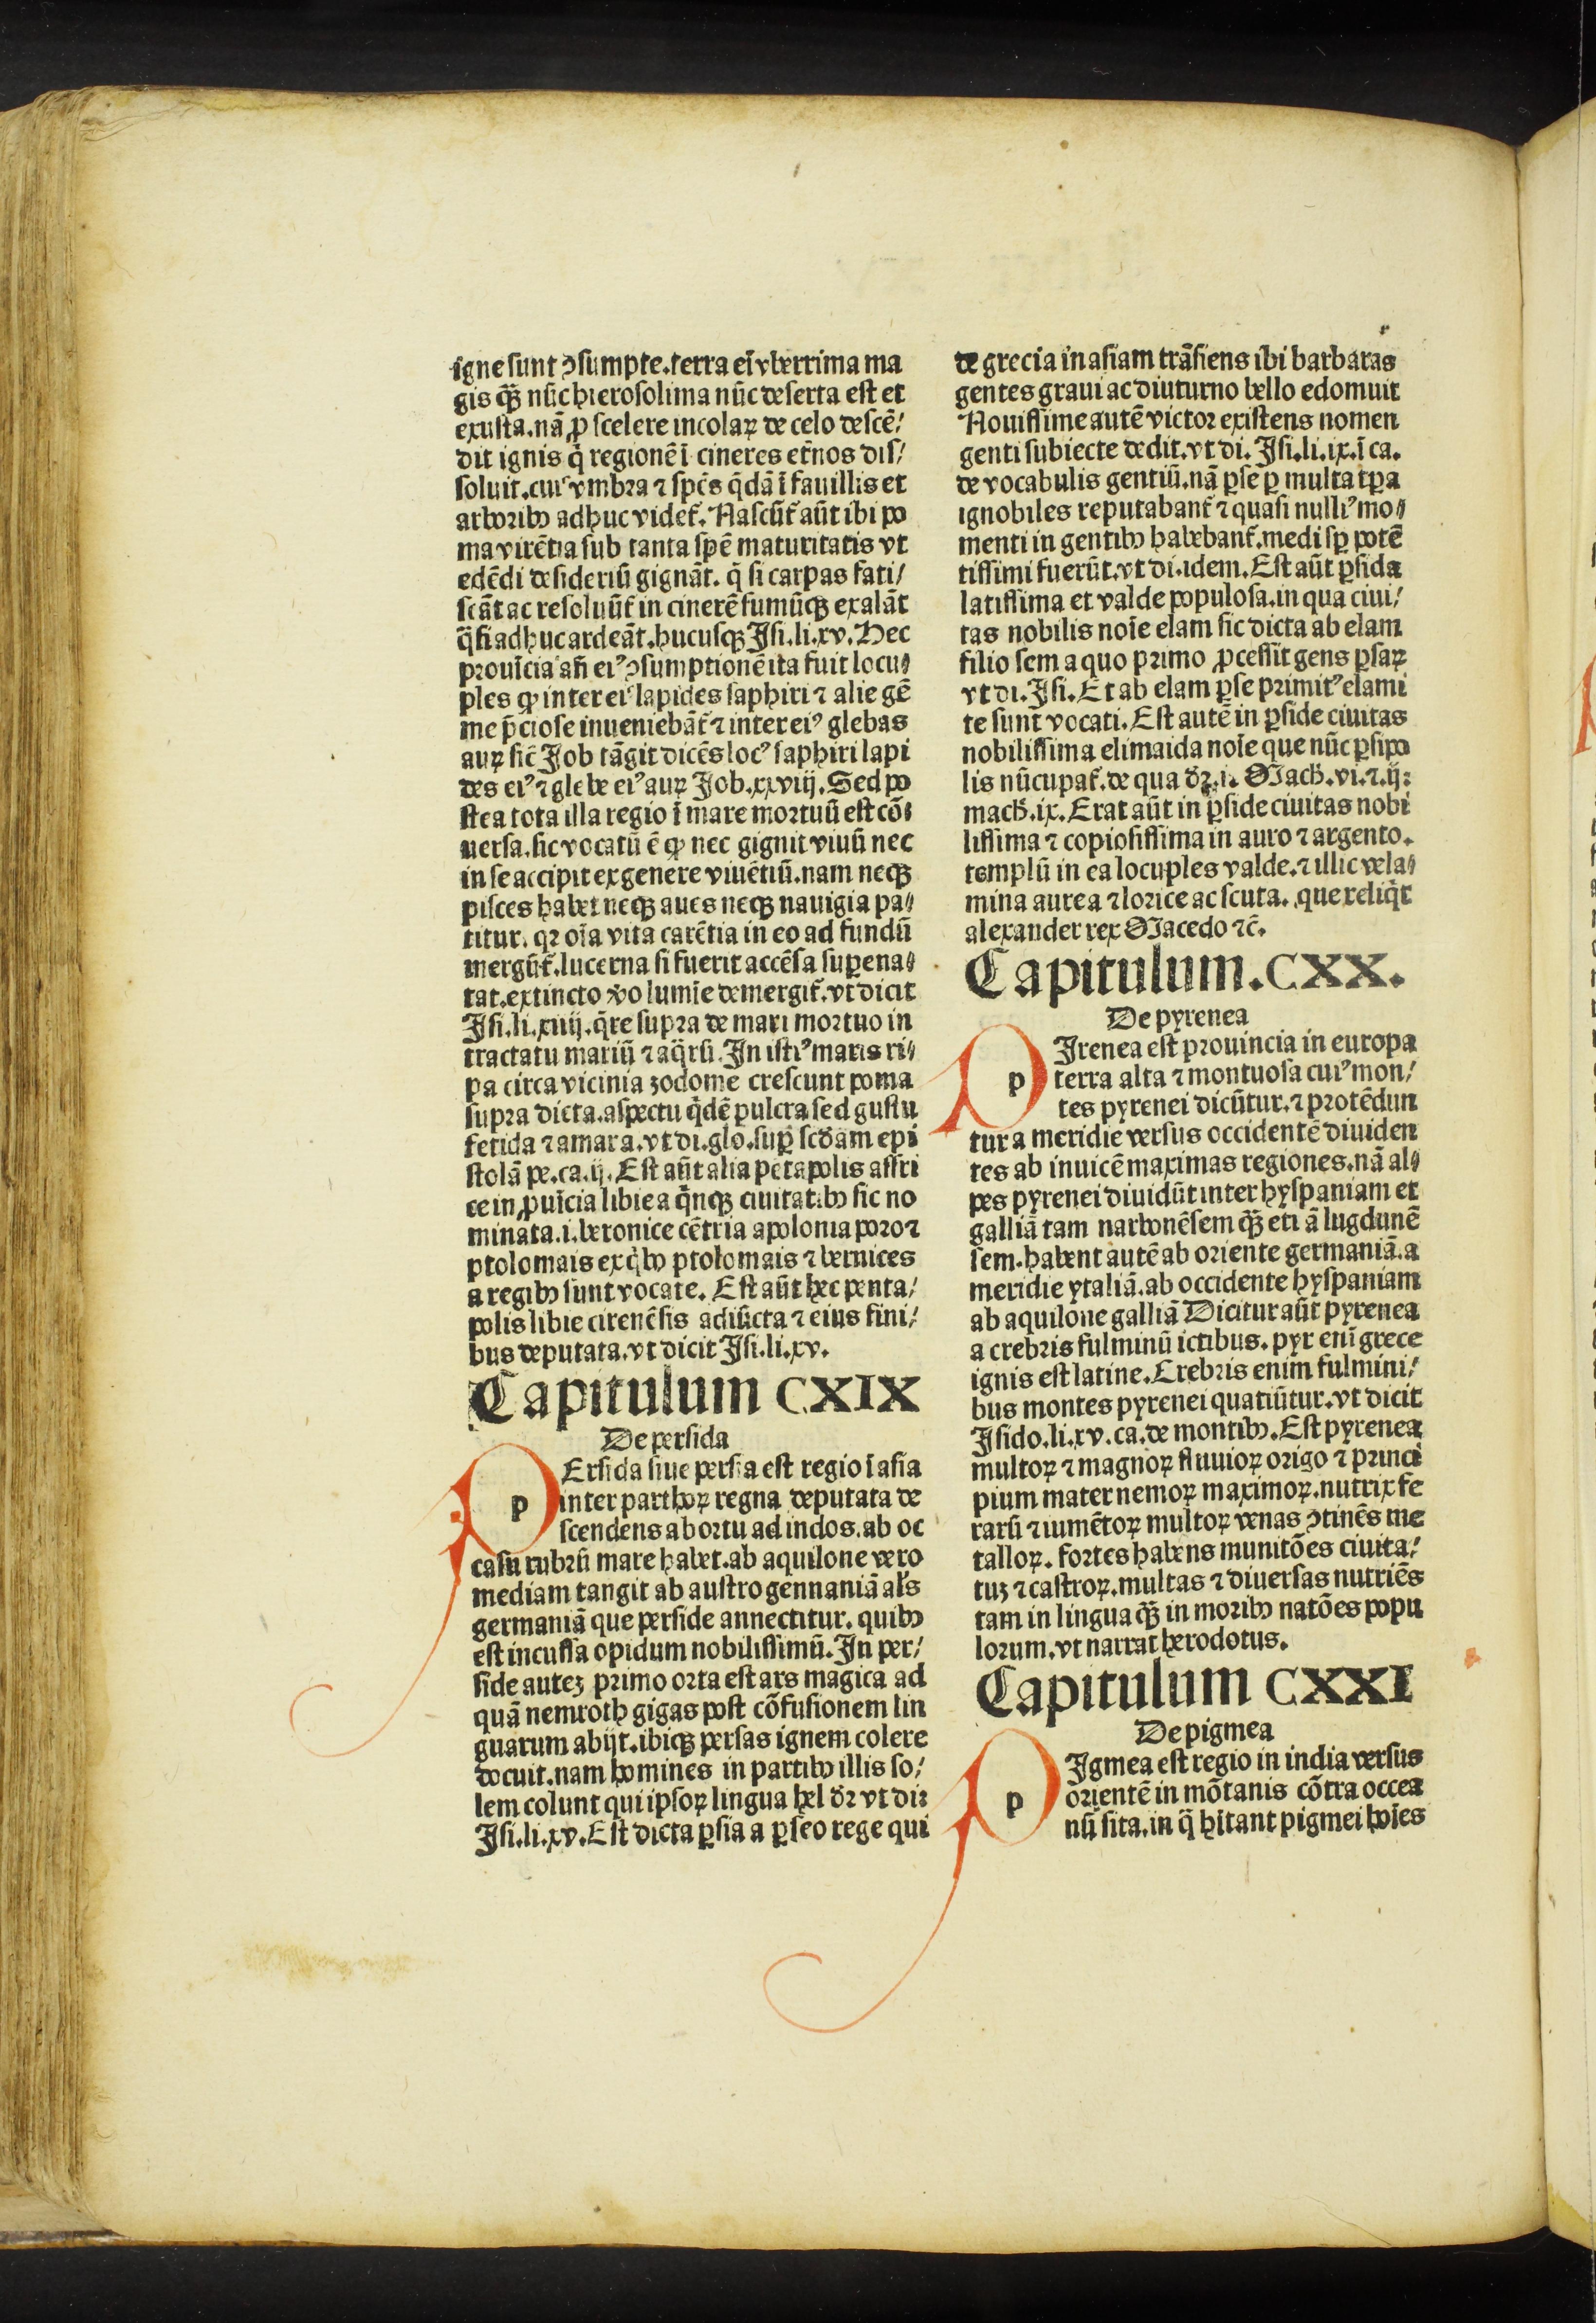 igne sunt ↄsumpte.terra eī vberrima ma
gis qꝫ̄ nūc hierosolima nūc deserta est et
exusta.nā ꝓ scelere incolaꝝ de celo descē/
dit ignis q̄ regionē ī cineres et̄nos dis/
soluit.cuiꝰ vmbra ⁊ spēs q̄dā ī fauillis et
arboribꝰ adhuc videt̄. Nascūt̄ aūt ibi po
ma virētia sub tanta spē maturitatis vt
edēdi desideriū gignāt. q̄ si carpas fati/
scāt ac resoluūt̄ in cinerē fumūqꝫ exalāt
q̄si adhuc ardeāt.hucusqꝫ Isi.li.xv. Hec
prouīcia an̄ eiꝰ ↄsumptionē ita fuit locu/
ples ꝙ inter eiꝰ lapides saphiri ⁊ alie gē
me p̄ciose inueniebāt̄ ⁊ inter eiꝰ glebas
auꝝ sic̄ Job tāgit dicēs locꝰ saphiri lapi
des eiꝰ ⁊ glebe eiꝰ auꝝ Job.xxviij. Sed po
stea tota illa regio ī mare mortuū est cō/
uersa.sic vocatū ē ꝙ nec gignit viuū nec
in se accipit ex genere viuētiū.nam neqꝫ
pisces habet neqꝫ aues neqꝫ nauigia pa/
titur. qꝛ oīa vita carētia in eo ad fundū
mergūt̄.lucerna si fuerit accēsa suꝑena/
tat.extincto v̄o lumīe demergit̄.vt dicit
Isi.li.xiiij.q̄re supra de mari mortuo in
tractatu mariū ⁊ aq̄rū. In istiꝰ maris ri/
pa circa vicinia zodome crescunt poma
supra dicta.aspectu q̄dē pulcra sed gustu
fetida ⁊ amara.vt di.glo.suꝑ scd̄am epi
stolā pe.ca.ij. Est aūt alia pētapolis affri
ce in ꝓuīcia libie a q̄nqꝫ ciuitatibꝰ sic no
minata.i.beronice cētria apolonia poro ⁊
ptolomais ex q̄bꝰ ptolomais ⁊ bernices
a regibꝰ sunt vocate. Est aūt hec penta/
polis libie cirenēsis adiūcta ⁊ eius fini/
bus deputata.vt dicit Isi.li.xv.
Capitulum CXIX
De persida
p
Ersida siue persia est regio ī asia
inter parthoꝝ regna deputata de
scendens ab ortu ad indos.ab oc
casu rubrū mare habet.ab aquilone vero
mediam tangit ab austro gennaniā al̄s
germaniā que perside annectitur. quibꝰ
est incussa opidum nobilissimū. In per/
side autez primo orta est ars magica ad
quā nemroth gigas post cōfusionem lin
guarum abijt.ibiqꝫ persas ignem colere
docuit.nam homines in partibꝰ illis so/
lem colunt qui ipsoꝝ lingua hel dꝛ vt di:
Isi.li.xv. Est dicta ꝑsia a ꝑseo rege qui
de grecia in asiam trāsiens ibi barbaras
gentes graui ac diuturno bello edomuit
Nouissime autē victor existens nomen
genti subiecte dedit.vt di. Isi.li.ix.ī ca.
de vocabulis gentiū.nā ꝑse ꝑ multa tꝑa
ignobiles reputabant̄ ⁊ quasi nulliꝰ mo/
menti in gentibꝰ habebant̄.medi sꝑ potē
tissimi fuerūt.vt di.idem. Est aūt ꝑsida
latissima et valde populosa.in qua ciui/
tas nobilis noīe elam sic dicta ab elam
filio sem a quo primo ꝓcessit gens ꝑsaꝝ
vt di. Isi. Et ab elam ꝑse primitꝰ elami
te sunt vocati. Est autē in ꝑside ciuitas
nobilissima elimaida noīe que nūc ꝑsipo
lis nūcupat̄.de qua dꝛ.i. Mach̄.vi.⁊.ij:
mach̄.ix. Erat aūt in ꝑside ciuitas nobi
lissima ⁊ copiosissima in auro ⁊ argento.
templū in ea locuples valde.⁊ illic vela/
mina aurea ⁊ lorice ac scuta. que reliq̄t
alexander rex Macedo ⁊c̄.
Capitulum.CXX.
De pyrenea
p
Irenea est prouincia in europa
terra alta ⁊ montuosa cuiꝰ mon/
tes pyrenei dicūtur.⁊ protēdun
tur a meridie versus occidentē diuiden
tes ab inuicē maximas regiones.nā al/
pes pyrenei diuidūt inter hyspaniam et
galliā tam narbonēsem qꝫ̄ eti ā lugdunē
sem.habent autē ab oriente germaniā.a
meridie ytaliā.ab occidente hyspaniam
ab aquilone galliā Dicitur aūt pyrenea
a crebris fulminū ictibus. pyr eni̅ grece
ignis est latine. Crebris enim fulmini/
bus montes pyrenei quatiūtur.vt dicit
Isido.li.xv.ca.de montibꝰ. Est pyrenea
multoꝝ ⁊ magnoꝝ fluuioꝝ origo ⁊ princi
pium mater nemoꝝ maximoꝝ.nutrix fe
rarū ⁊ iumētoꝝ multoꝝ venas ↄtinēs me
talloꝝ. fortes habens munitōes ciuita/
tuꝫ ⁊ castroꝝ.multas ⁊ diuersas nutriēs
tam in lingua qꝫ̄ in moribꝰ natōes popu
lorum.vt narrat herodotus.
Capitulum CXXI
De pigmea
p
Igmea est regio in india versus
orientē in mōtanis cōtra occea
nū sita.in q̄ hītant pigmei hoīes